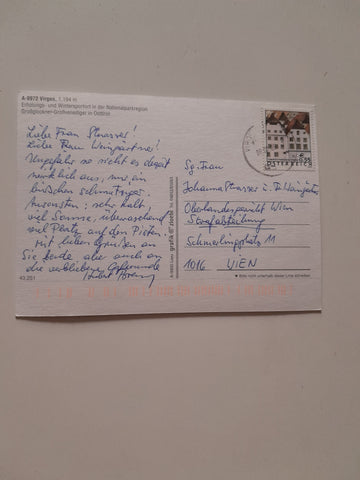 A-9972 Virgen, 1.194 m
Erholungs- und Wintersportort in der Nationalparkregion
Großglockner-Großvenediger in Osttirol
Liebe Frau Strasser!
Liebe Frau Weingartner!
Ungefähr so sieht es derzeit
wirklich aus, nur ein
bißchen schmutziger.
Ansonsten: sehr kalt,
viel Sonne, überraschend
viel Platz auf den Pisten.
Mit lieben Grüßen an
Sie beide aber auch an
die verbliebene
43.251
A-9900 Lienz grafik zloebl
ÖSTERREICH
Sg. Frau
Johanna Strasser u. Weingartner
Oberlandesgericht Wien
Schmerlingplatz 11
1016 WIEN
Bitte nicht unterhalb dieser Linie schreiben